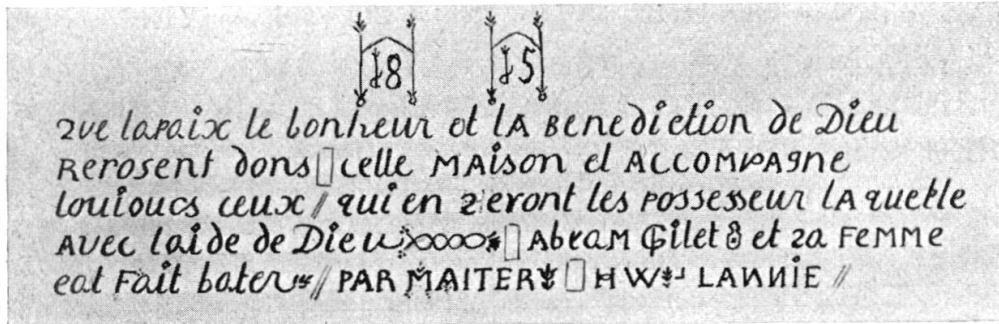 18 15
que lapaix le bonheur et lA Benediction de Dieu
Rerosent dons celle MAison el ACCOMPAgne
louioucs ceux // qui en zeront les possesseur lA quelle
AVEC laide de Dieu AbrAM Gilet 8 et za FeMMe
eat Fait bater // PAR MAITER H W LANNIE //